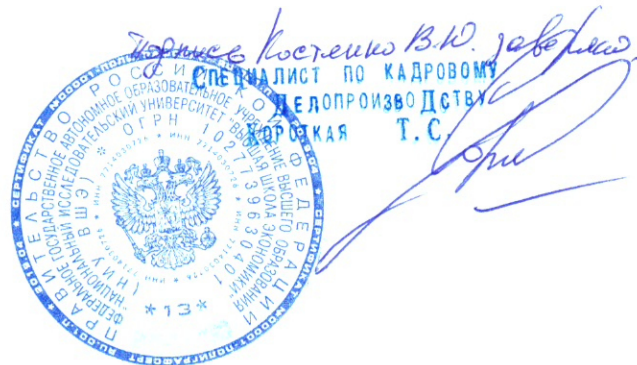 Подпись Костенко В.Ю. заверяю
СПЕЦИАЛИСТ ПО КАДРОВОМУ
ДЕЛОПРОИЗВОДСТВУ
КОРОТКАЯ Т.С.
ПРАВИТЕЛЬСТВО РОССИЙСКОЙ ФЕДЕРАЦИИ
ФЕДЕРАЛЬНОЕ ГОСУДАРСТВЕННОЕ АВТОНОМНОЕ ОБРАЗОВАТЕЛЬНОЕ УЧРЕЖДЕНИЕ ВЫСШЕГО ОБРАЗОВАНИЯ
"НАЦИОНАЛЬНЫЙ ИССЛЕДОВАТЕЛЬСКИЙ УНИВЕРСИТЕТ "ВЫСШАЯ ШКОЛА ЭКОНОМИКИ"
(НИУ ВШЭ) * ОГРН 1027739630401
*13*